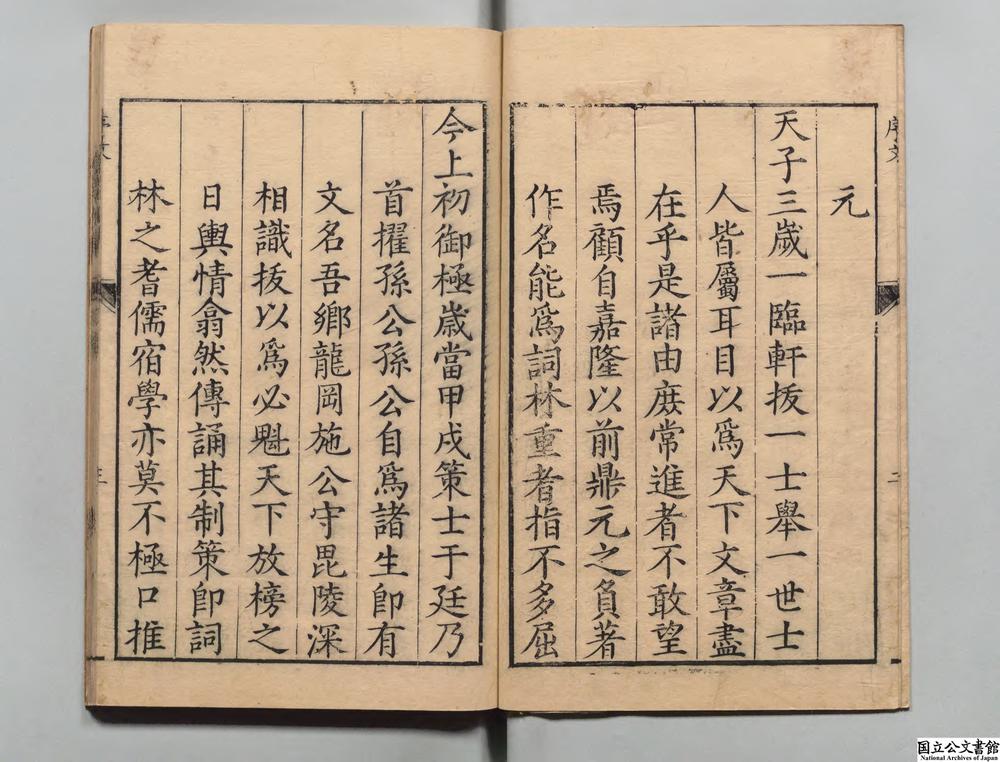 元
天子三歲一臨軒拔一士舉一世士
人皆屬耳目以爲天下文章盡
在乎是諸由庶常進者不敢望
焉顧自嘉隆以前鼎元之負著
作名能爲詞林重者指不多屈
今上初御極歲當甲戌策士于廷乃
首擢孫公孫公自爲諸生卽有
文名吾鄉龍岡施公守毘陵深
相識拔以爲必魁天下放榜之
日輿情翕然傳誦其制策卽詞
林之耆儒宿學亦莫不極口推
序文
二
序文
三
国立公文書館
National Archives of Japan